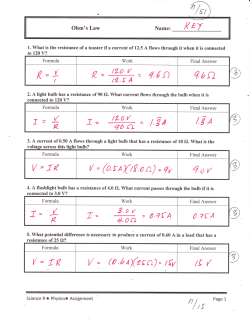 /51
Ohm's Law Name: KEY
1. What is the resistance of a toaster if a current of 12.5 A flows through it when it is connected
to 120 V?
Formula Work Final Answer
R = V/I R = 120 V / 12.5 A = 9.6 Ω 9.6 Ω 3
2. A light bulb has a resistance of 90 Ω. What current flows through the bulb when it is
connected to 120 V?
Formula Work Final Answer
I = V/R I = 120 V / 90 Ω = 1.3 A 1.3 A 3
3. A current of 0.50 A flows through a light bulb that has a resistance of 18 Ω. What is the
voltage across this light bulb?
Formula Work Final Answer
V = IR V = (0.5A)(18.0Ω) = 9V 9.0V 3
4. A flashlight bulb has a resistance of 4.0 Ω. What current passes through the bulb if it is
connected to 3.0 V?
Formula Work Final Answer
I = V/R I = 3.0V / 4.0Ω = 0.75A 0.75A 3
5. What potential difference is necessary to produce a current of 0.60 A in a load that has a
resistance of 25 Ω?
Formula Work Final Answer
V = IR V = (0.6A)(25Ω) = 15V 15 V 3
Science 9 Physics Assignment Page 1
/15